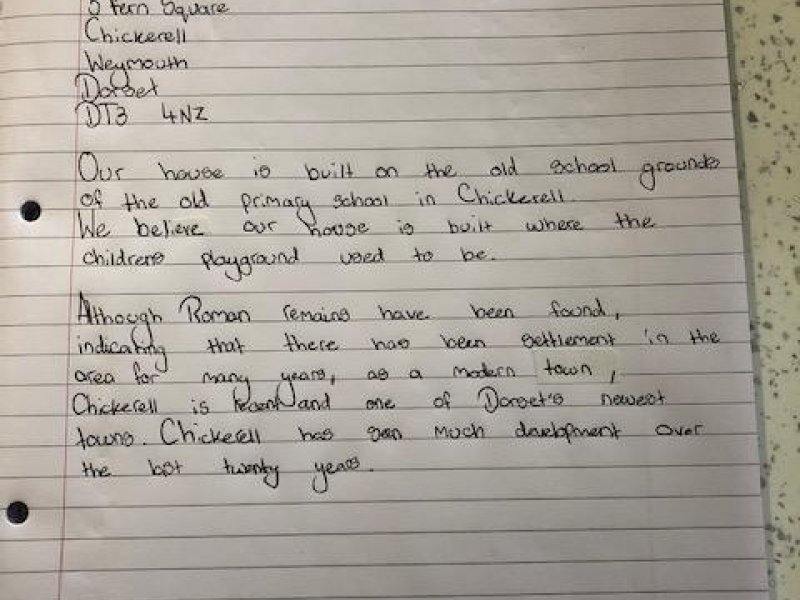 Fern Square
Chickerell
Weymouth
Dorset
DT3 4NZ
Our house is built on the old school grounds
of the old primary school in Chickerell.
We believe our house is built where the
childrens playground used to be.
Although Roman remains have been found,
indicating that there has been settlement in the
area for many years, as a modern town,
Chickerell is recent and one of Dorset's newest
towns. Chickerell has seen much development over
the last twenty years.